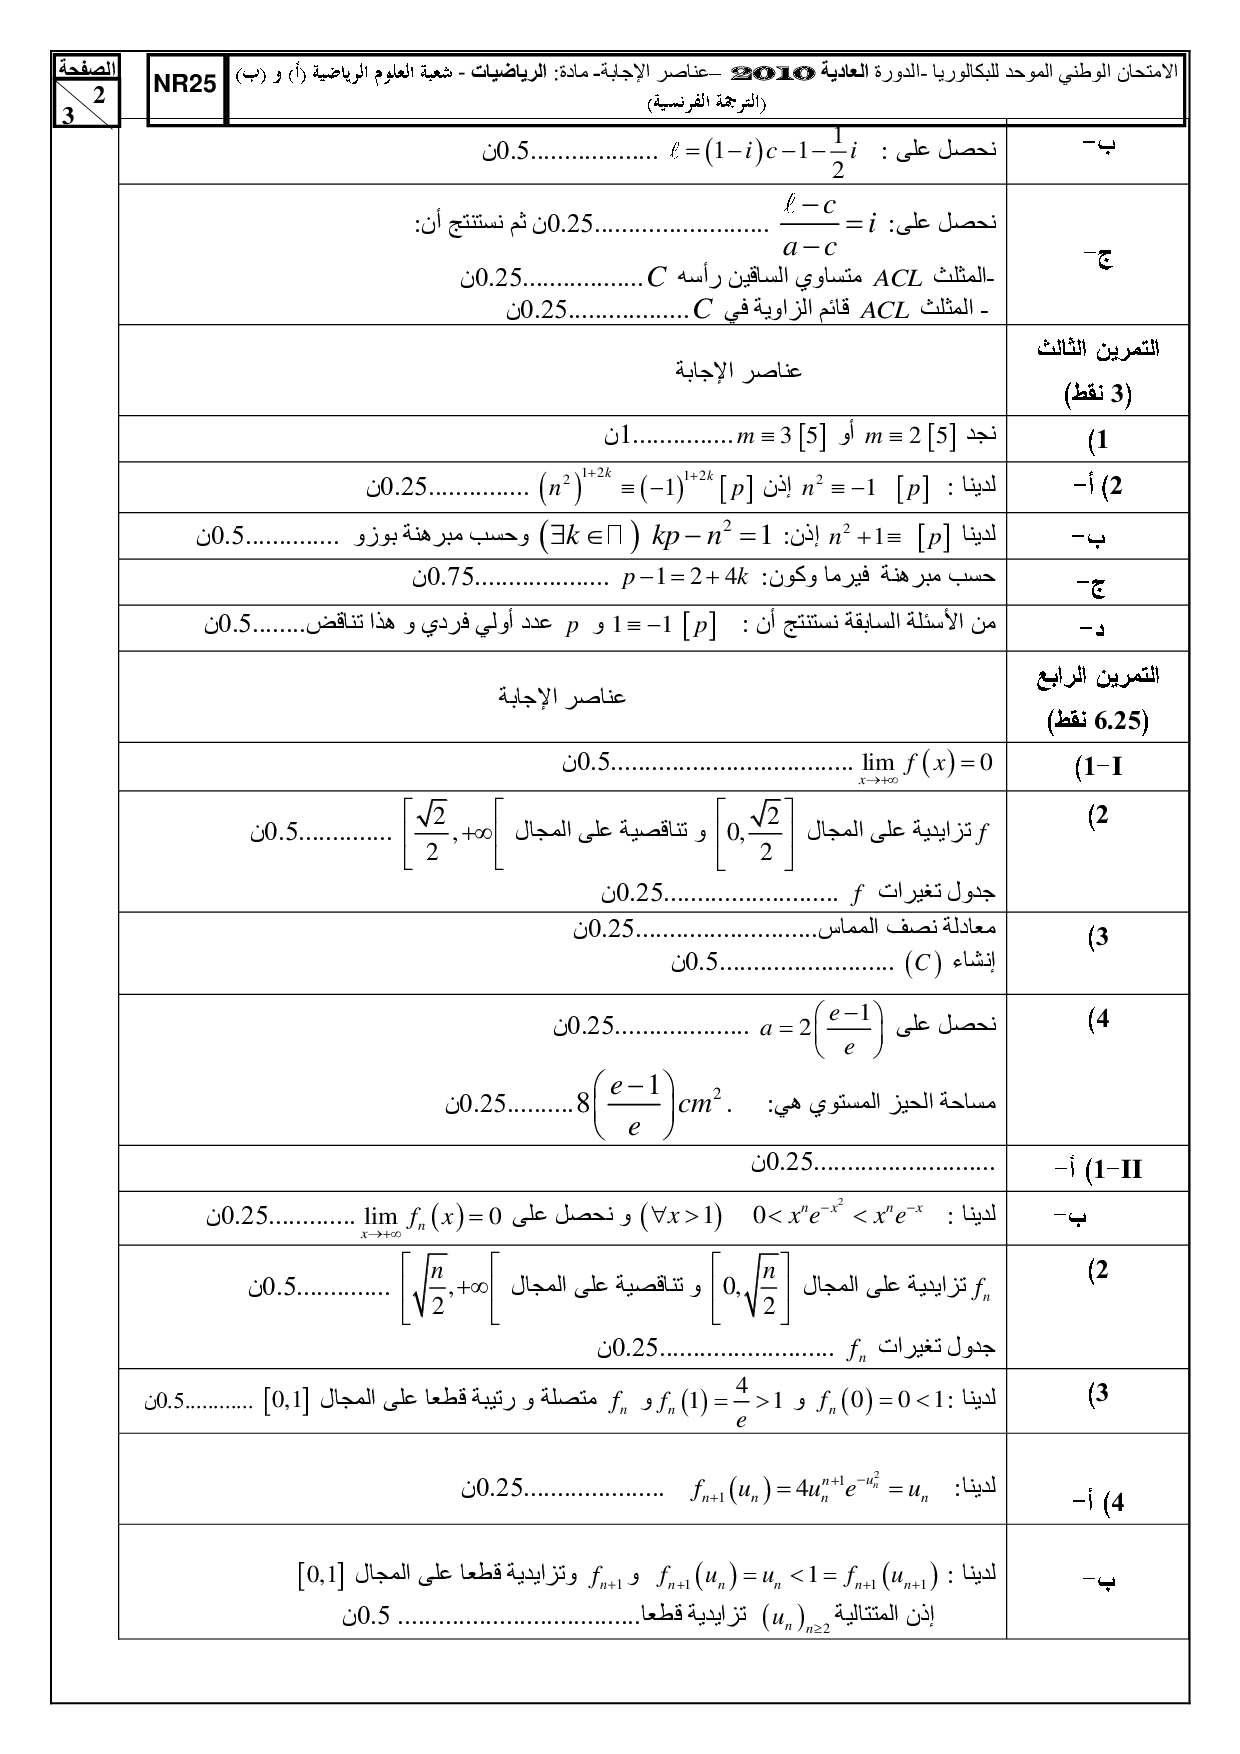 الصفحة
2
3
NR25
الامتحان الوطني الموحد للبكالوريا -الدورة العادية 2010 –عناصر الإجابة- مادة: الرياضيات - شعبة العلوم الرياضية (أ) و (ب)
(الترجمة الفرنسية)
ب- نحصل على : ℓ = (1−i)c −1− 1/2 i ...................0.5ن
ج- نحصل على: (ℓ − c)/(a − c) = i ..........................0.25ن ثم نستنتج أن:
-المثلث ACL متساوي الساقين رأسه C ..................0.25ن
- المثلث ACL قائم الزاوية في C ..................0.25ن
التمرين الثالث (3 نقط) عناصر الإجابة
1) نجد m ≡ 2 [5] أو m ≡ 3 [5] ...............1ن
2) أ- لدينا : n² ≡ −1 [p] إذن (n²)^(1+2k) ≡ (−1)^(1+2k) [p] ...............0.25ن
ب- لدينا n² +1 ≡ [p] إذن: kp − n² = 1 (∃k ∈ Π) وحسب مبرهنة بوزو ..............0.5ن
ج- حسب مبرهنة فيرما وكون: p −1 = 2 + 4k ....................0.75ن
د- من الأسئلة السابقة نستنتج أن : 1 ≡ −1 [p] و p عدد أولي فردي و هذا تناقض........0.5ن
التمرين الرابع (6.25 نقط) عناصر الإجابة
I-1) lim x→+∞ f(x) = 0 ....................................0.5ن
2) f تزايدية على المجال [0, √2/2] و تناقصية على المجال [√2/2, +∞[ ..............0.5ن
جدول تغيرات f ..........................0.25ن
3) معادلة نصف المماس...........................0.25ن
إنشاء (C) ..........................0.5ن
4) نحصل على a = 2((e−1)/e) ....................0.25ن
مساحة الحيز المستوي هي: 8((e−1)/e) cm² . ..........0.25ن
II-1) أ- ...........................0.25ن
ب- لدينا : 0 < xⁿe^(−x²) < xⁿe^(−x) (∀x > 1) و نحصل على lim x→+∞ fₙ(x) = 0 .............0.25ن
2) fₙ تزايدية على المجال [0, √(n/2)] و تناقصية على المجال [√(n/2), +∞[ ..............0.5ن
جدول تغيرات fₙ ..........................0.25ن
3) لدينا : fₙ(0) = 0 < 1 و fₙ(1) = 4/e > 1 و fₙ متصلة و رتيبة قطعا على المجال [0,1] ............0.5ن
4) أ- لدينا: fₙ₊₁(uₙ) = 4uₙ^(n+1) e^(−uₙ²) = uₙ .....................0.25ن
ب- لدينا : fₙ₊₁(uₙ) = uₙ < 1 = fₙ₊₁(uₙ₊₁) و fₙ₊₁ وتزايدية قطعا على المجال [0,1]
إذن المتتالية (uₙ)n≥2 تزايدية قطعا.................................... 0.5ن